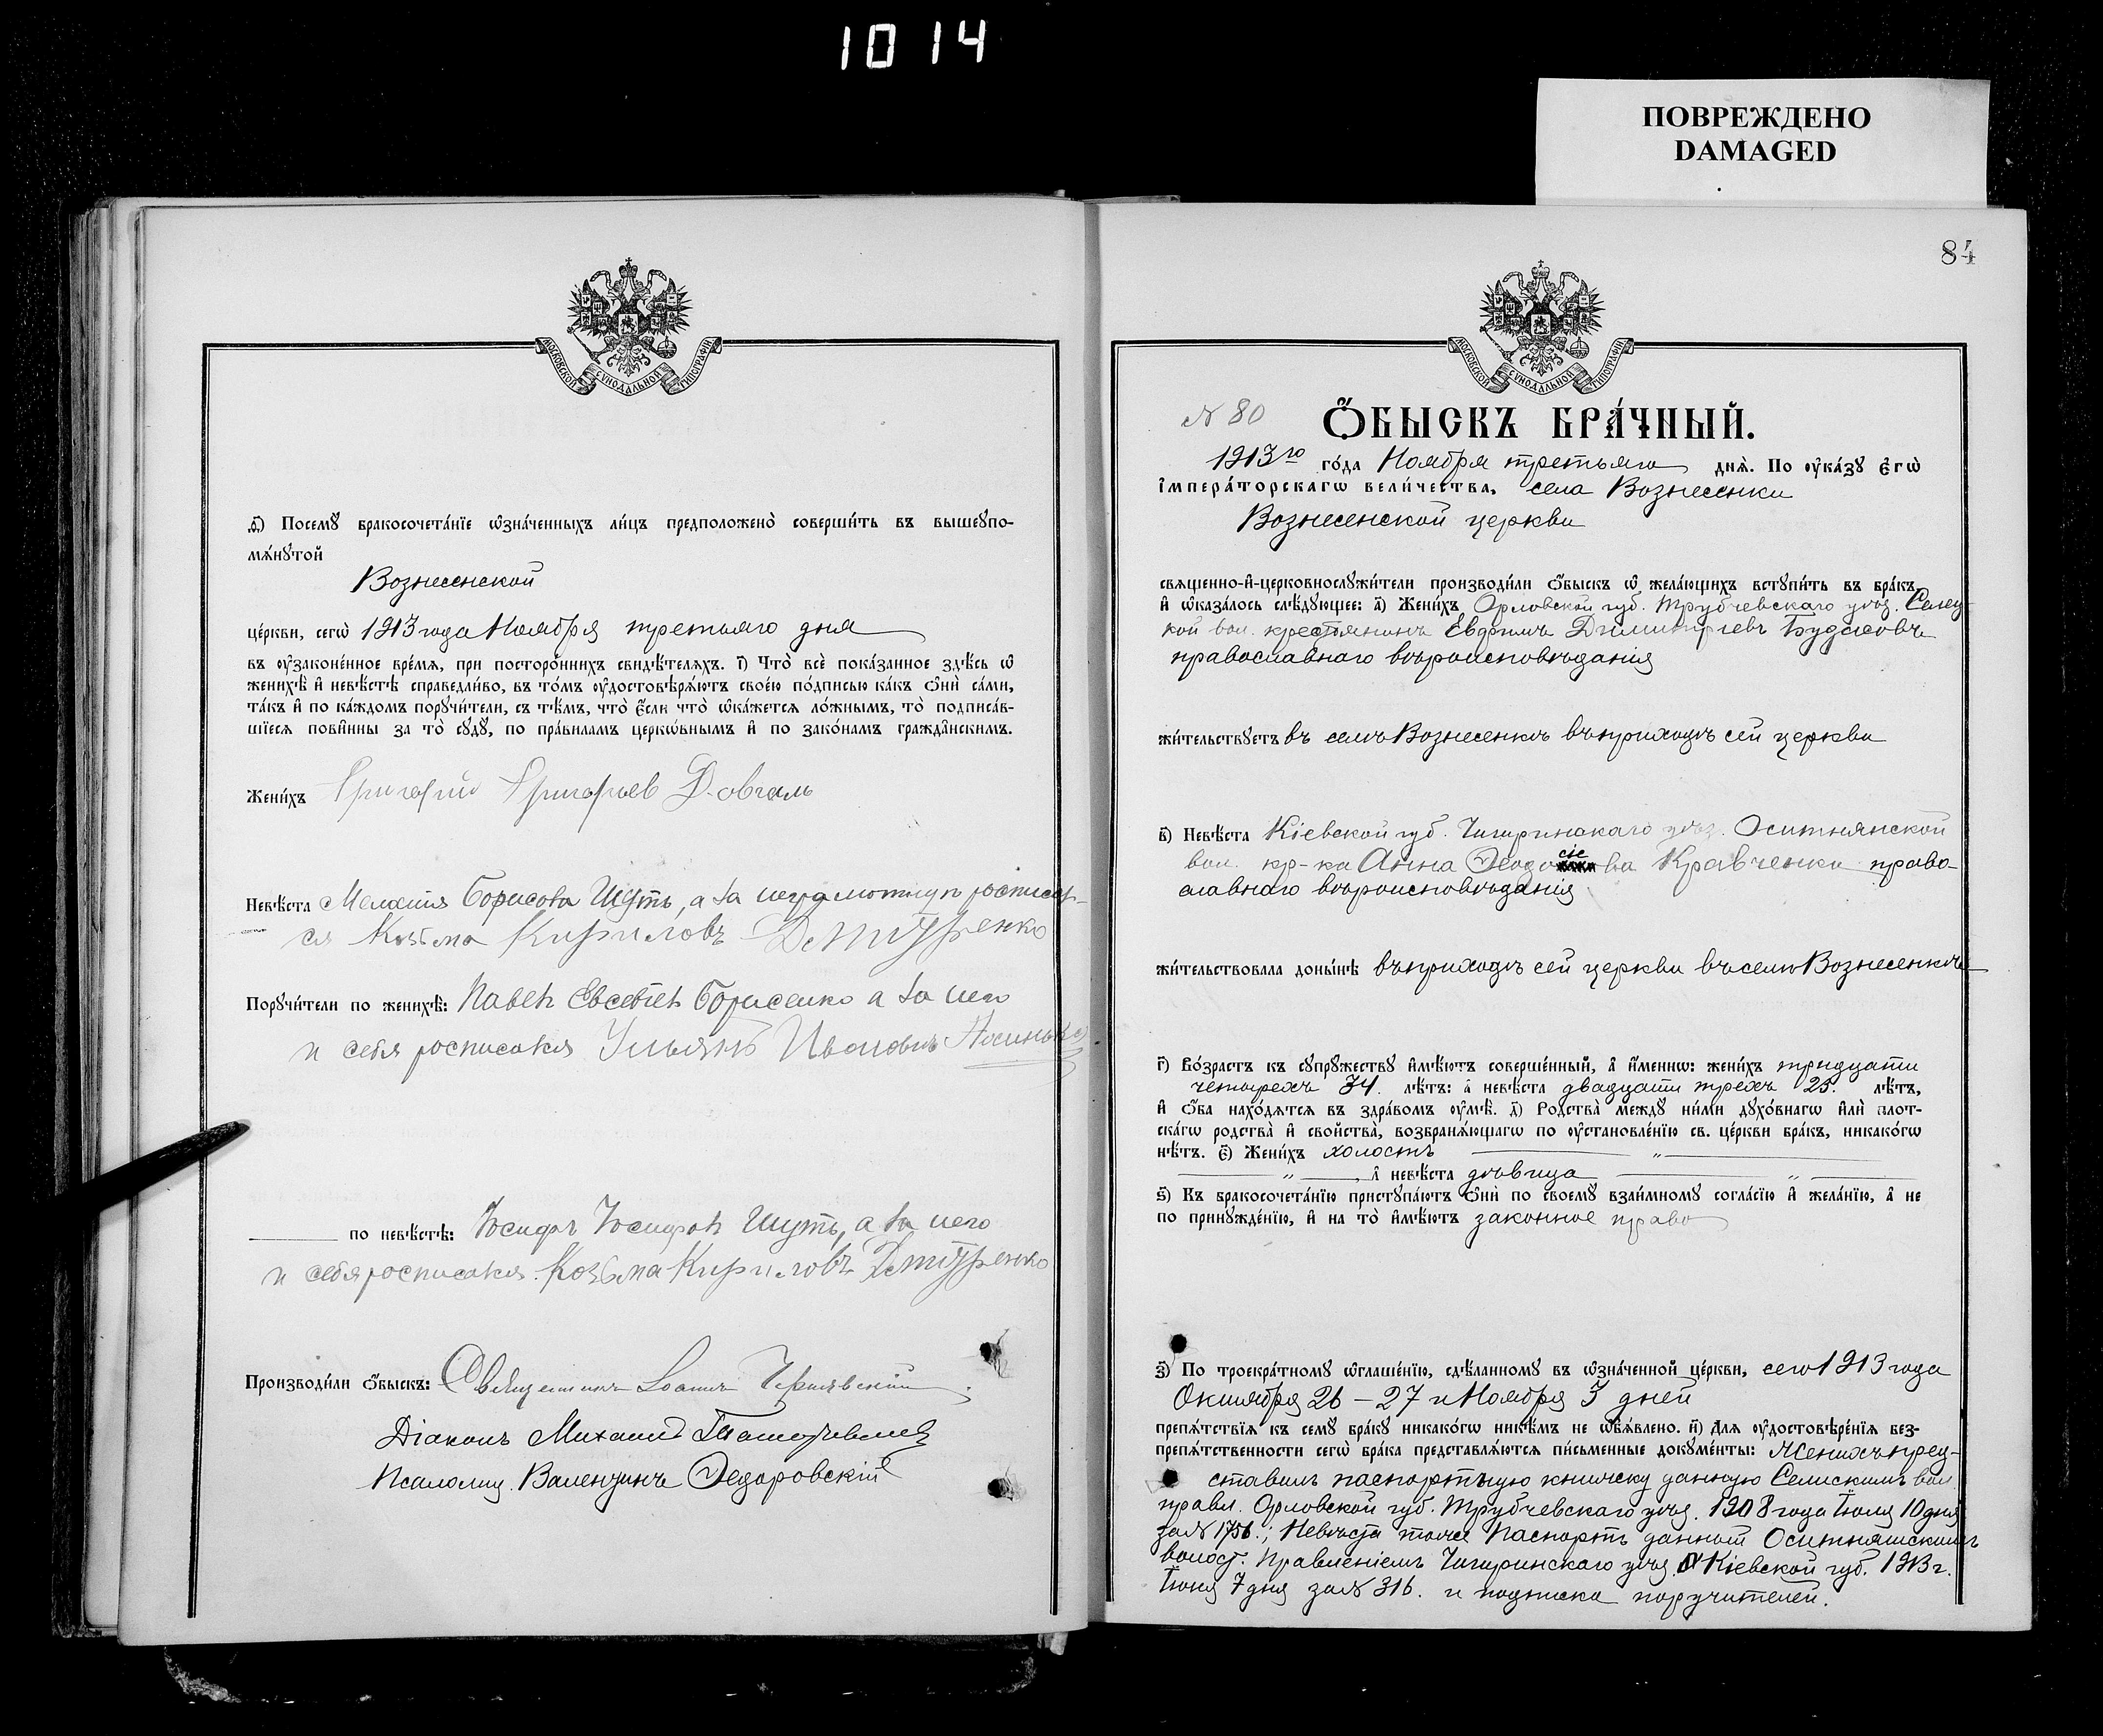 1014
ПОВРЕЖДЕНО
DAMAGED
МОСКОВСКОЙ СУНОДАЛЬНОЙ ТИПОГРАФІИ
Ѳ҃) Посемꙋ̀ бракосочета́нїе ѡ҆зна́ченныхъ ли́цъ предположено̀ соверши́ть въ вышеꙋпо-
мѧ́нꙋтой
Вознесенской
це́ркви, сегѡ̀ 1913 года Ноября третьяго дня
въ ᲂу҆зако́ненное вре́мѧ, при посторо́ннихъ свидѣ́телѧхъ. І҃) Что̀ всѐ пока́занное здѣ́сь ѡ҆
женихѣ̀ и҆ невѣ́стѣ справедли́во, въ то́мъ ᲂу҆достовѣрѧ́ютъ свое́ю по́дписью ка́къ ѻ҆нѝ са́ми,
та́къ и҆ по ка́ждомъ порꙋчи́тели, съ тѣ́мъ, что̀ є҆́сли что̀ ѡ҆ка́жетсѧ ло́жнымъ, то̀ подписа́в-
шїесѧ пови́нны за то̀ сꙋдꙋ̀, по пра́виламъ церкѡ́внымъ и҆ по зако́намъ гражда̂нскимъ.
Жени́хъ Григорій Григорьев Довгаль
Невѣ́ста Мелания Борисова Шуть, а за неграмотную росписал-
ся Козьма Кириловъ Дмитренко
Порꙋчи́тели по женихѣ̀: Павел Евсевіев Борисенко а за него
и себя росписался Ульянъ Ивановъ
по невѣ́стѣ: Іосифъ Іосифов Шуть, а за него
и себя росписался Козьма Кириловъ Дмитренко
Производи́ли ѻ҆́быскъ: Священникъ Іоаннъ Чернявскій
Діаконъ Михаилъ
Псаломщ. Валентинъ Федоровскій
84
МОСКОВСКОЙ СУНОДАЛЬНОЙ ТИПОГРАФІИ
№ 80
Ѻ҆́БЫСКЪ БРА́ЧНЫЙ.
1913го го́да Ноября третьяго днѧ̀. По ᲂу҆ка́зꙋ є҆гѡ̀
і҆мпера́торскагѡ вели́чества, села Вознесенки
Вознесенской церкви
свѧще́нно-и҆-церковнослꙋжи́тели производи́ли ѻ҆́быскъ ѡ҆ жела́ющихъ встꙋпи́ть въ бра́къ,
и҆ ѡ҆каза́лось слѣ́дꙋющее: а҃) Жени́хъ Орловской губ. Трубчевскаго уѣз. Селец-
кой вол. крестьянинъ Евфимъ Димитріевъ Будаковъ
православнаго вѣроисповѣданія
жи́тельствꙋетъ въ селѣ Вознесенкѣ въ приходѣ сей церкви
в҃) Невѣ́ста Кіевской губ. Чигиринскаго уѣз. Оситнянской
вол. кр-ка Анна Феодосіева Кравченко право-
славнаго вѣроисповѣданія
жи́тельствовала доны́нѣ въ приходѣ сей церкви въ селѣ Вознесенкѣ
г҃) Во́зрастъ къ сꙋпрꙋ́жествꙋ и҆мѣ́ютъ соверше́нный, а҆ и҆́меннѡ: жени́хъ тридцати
четырехъ 34. лѣ́тъ: а҆ невѣ́ста двадцати трехъ 23. лѣ́тъ,
и҆ ѻ҆́ба нахо́дѧтсѧ въ здра́вомъ ᲂу҆мѣ̀. д҃) Родства̀ междꙋ̀ ни́ми дꙋхо́внагѡ и҆лѝ плот-
ска́гѡ родства̀ и҆ свойства̀, возбранѧ́ющагѡ по ᲂу҆становле́нїю св. це́ркви бра́къ, никако́гѡ
нѣ́тъ. є҃) Жени́хъ холостъ "
" , а҆ невѣ́ста дѣвица "
ѕ҃) Къ бракосочета́нїю пристꙋпа́ютъ ѻ҆нѝ по своемꙋ̀ взаи́мномꙋ согла́сїю и҆ жела́нїю, а҆ не
по принꙋжде́нїю, и҆ на то̀ и҆мѣ́ютъ законное право
з҃) По троекра́тномꙋ ѡ҆глаше́нїю, сдѣ́ланномꙋ въ ѡ҆зна́ченной це́ркви, сего 1913 года
Октября 26 – 27 и Ноября 3 дней
препѧ́тствїѧ къ семꙋ̀ бра́кꙋ никако́гѡ никѣ́мъ не ѡ҆б̾ѧ́влено. и҃) Длѧ ᲂу҆достовѣре́нїѧ без-
препѧ́тственности сегѡ̀ бра́ка представлѧ́ютсѧ пи́сьменные докꙋме́нты: Женихъ пред-
ставилъ паспортную книжку данную Селецкимъ вол.
правл. Орловской губ. Трубчевскаго уѣз. 1908 года Іюля 10 дня
за № 1756.; Невѣста тоже паспортъ данный Оситняжскимъ
волост. Правленіемъ Чигиринскаго уѣз. Кіевской губ. 1913 г.
Іюня 7 дня за № 316. и подписка поручителей.